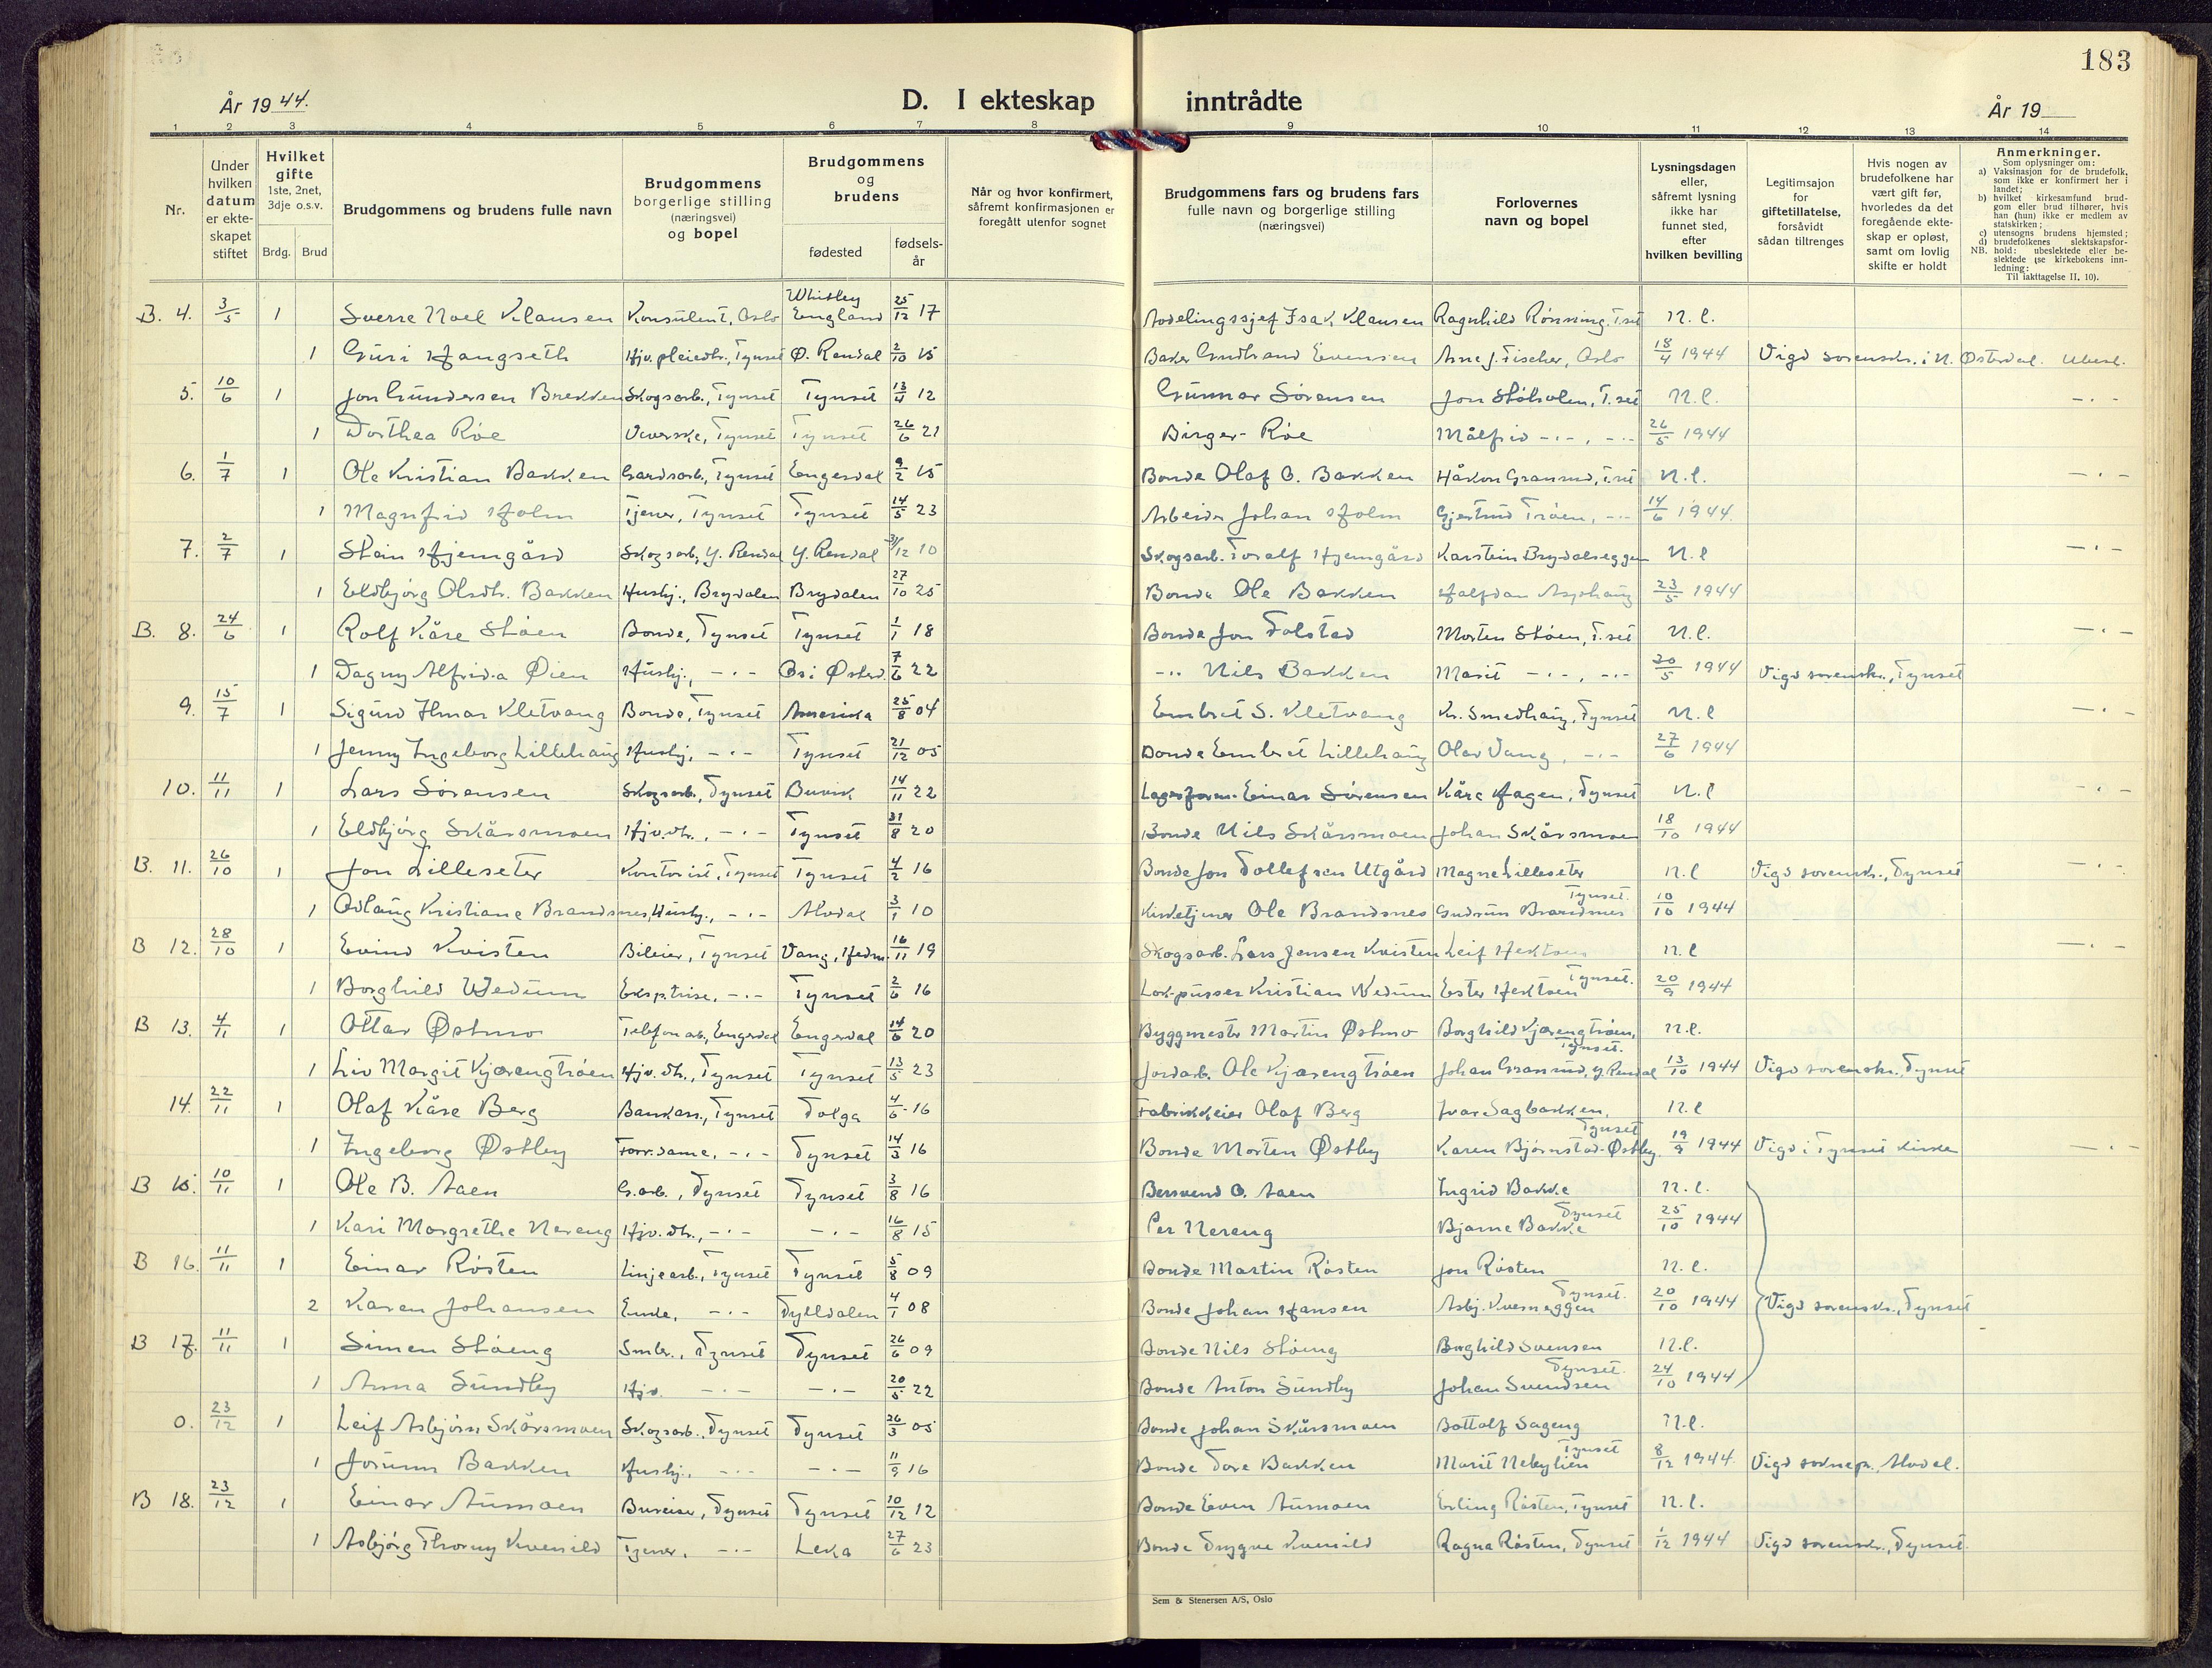 183
År 1944.
D. I ekteskap inntrådte
År 19
1 2 3 4 5 6 7 8 9 10 11 12 13 14
Nr.
Under hvilken datum er ekte-skapet stiftet
Hvilket gifte 1ste, 2net, 3dje o.s.v.
Brdg. Brud
Brudgommens og brudens fulle navn
Brudgommens borgerlige stilling (næringsvei) og bopel
Brudgommens og brudens
fødested
fødsels-år
Når og hvor konfirmert, såfremt konfirmasjonen er foregått utenfor sognet
Brudgommens fars og brudens fars fulle navn og borgerlige stilling (næringsvei)
Forlovernes navn og bopel
Lysningsdagen eller, såfremt lysning ikke har funnet sted, efter hvilken bevilling
Legitimsajon for giftetillatelse, forsåvidt sådan tiltrenges
Hvis nogen av brudefolkene har vært gift før, hvorledes da det foregående ekte-skap er opløst, samt om lovlig skifte er holdt
Anmerkninger.
Som oplysninger om:
a) Vaksinasjon for de brudefolk, som ikke er konfirmert her i landet;
b) hvilket kirkesamfund brud-gom eller brud tilhører, hvis han (hun) ikke er medlem av statskirken;
c) utensogns brudens hjemsted;
d) brudefolkenes slektskapsfor-
NB. hold: ubeslektede eller be-slektede (se kirkebokens inn-ledning:
Til iakttagelse II, 10).
B. 4. 3/5 1 Sverre Noel Klausen Konsulent, Oslo Whitley England 25/12 17 Avdelingssjef Isak Klausen Ragnhild Rønning, T.set n.l.
1 Guri Hangseth Hjv. pleiedtr., Tynset Ø. Rendal 2/10 15 Baker Gudbrand Evensen Arne J. Fischer, Oslo 18/4 1944 Vigd sorenskr. i N. Østerdal. Ubesl.
5. 10/6 1 Jon Gundersen Brekken Skogsarb., Tynset Tynset 13/4 12 Gunnar Sørensen Jon Stølsolen, T.set n.l. -·-
1 Dorthea Røe Veverske, Tynset Tynset 26/6 21 Birger Røe Målfrid -·-, -·- 26/5 1944
6. 1/7 1 Ole Kristian Bakken Gardsarb., Tynset Engerdal 9/2 15 Bonde Olaf O. Bakken Håkon Granrud, T.set n.l. -·-
1 Magnfrid Holm Tjener, Tynset Tynset 14/5 23 Arbeider Johan Holm Gjertrud Trøen, -·- 14/6 1944.
7. 2/7 1 Stein Hjemgård Skogsarb, Y. Rendal Y. Rendal 31/12 10 Skogsarb. Toralf Hjemgård Karstein Brydalseggen n.l -·-
1 Eldbjørg Olsdtr. Bakken Husbj., Brydalen Brydalen 27/10 25 Bonde Ole Bakken Halfdan Asphaug 23/5 1944
B. 8. 24/6 1 Rolf Kåre Støen Bonde, Tynset Tynset 1/1 18 Bonde Jon Tolstad Morten Støen, T.set n.l. -·-
1 Dagny Alfrida Øien Husbj., -·- Os i Østerd. 7/6 22 -·- Nils Bakken Marit -·-, -·- 20/5 1944 Vigd sorenskr., Tynset
9. 15/7 1 Sigurd Ilmar Kletvang Bonde, Tynset Amerika 25/8 04 Embret S. Kletvang Kr. Smedhaug, Tynset n.l -·-
1 Jenny Ingeborg Lillehaug Husbj., -·- Tynset 21/12 05 Bonde Embret Lillehaug Olav Vang, -·- 27/6 1944
10. 11/11 1 Lars Sørensen Skogsarb., Tynset Buvik 14/11 22 Lagerform. Einar Sørensen Kåre Hagen, Tynset n.l -·-
1 Eldbjørg Skårsmoen Hjv.dtr., -·- Tynset 31/8 20 Bonde Nils Skårsmoen Johan Skårsmoen 18/10 1944
B. 11. 26/10 1 Jon Lilleseter Kontorist, Tynset Tynset 4/2 16 Bonde Jon Tollefsen Utgård Magne Lilleseter n.l Vigd sorenskr., Tynset -·-
1 Odlaug Kristiane Brandsnes, Husbj., -·- Alvdal 3/1 10 Kirketjener Ole Brandsnes Gudrun Brandsnes Tynset. 10/10 1944
B 12. 28/10 1 Evind Kvisten Bileier, Tynset Vang, Hedm. 16/11 19 Skogsarb. Lars Jensen Kvisten Leif Hektoen n.l -·-
1 Borghild Wedum Eksp.trise, -·- Tynset 2/6 16 Lok-pusser Kristian Wedum Ester Hektoen Tynset. 20/9 1944
B 13. 4/11 1 Ottar Østmo Telefonarb., Engerdal Engerdal 14/6 20 Byggmester Martin Østmo Borghild Kjærengtrøen, Tynset. n.l.
1 Liv Margit Kjærengtrøen Hjv. dtr., Tynset Tynset 13/5 23 Jordarb. Ole Kjærengtrøen Johan Granrud, Y. Rendal 13/10 1944 Vigd sorenskr., Tynset
14. 22/11 1 Olaf Kåre Berg Bankass., Tynset Tolga 4/6 16 Fabrikkeier Olaf Berg Ivar Sagbakken, Tynset n.l
1 Ingeborg Østby Forr.dame, -·- Tynset 14/3 16 Bonde Morten Østby Karen Bjørnstad-Østby. 19/9 1944 Vigd i Tynset kirke -·-
B 15. 10/11 1 Ole B. Aaen G.arb., Tynset Tynset 3/8 16 Bersvend O. Aaen Ingrid Bakke n.l.
1 Kari Margrethe Nereng Hjv. dtr., -·- -·- 16/8 15 Per Nereng Bjarne Bakke Tynset 25/10 1944
B 16. 11/11 1 Einar Røsten Linjearb., Tynset Tynset 5/8 09 Bonde Martin Røsten Jon Røsten n.l.
2 Karen Johansen Enke, -·- Tylldalen 4/1 08 Bonde Johan Hansen Asbj. Kverneggen Tynset. 20/10 1944 Vigd sorenskr., Tynset
B 17. 11/11 1 Simen Støeng Smbr., Tynset Tynset 26/6 09 Bonde Nils Støeng Borghild Svensen n.l.
1 Anna Sundby Hjv. -·- -·- 20/5 22 Bonde Anton Sundby Johan Svendsen Tynset. 24/10 1944
0. 23/12 1 Leif Asbjørn Skårsmoen Skogsarb., Tynset Tynset 26/3 05 Bonde Johan Skårsmoen Bottolf Sageng n.l.
1 Jorunn Bakken Husbj., -·- -·- 11/9 16 Bonde Tore Bakken Marit Nebylien Tynset 8/12 1944. Vigd soknepr., Alvdal.
B 18. 23/12 1 Einar Aumoen Bureiser, Tynset Tynset 10/12 12 Bonde Even Aumoen Erling Røsten, Tynset n.l.
1 Asbjørg Thorny Kvenild Tjener, -·- Leka 27/6 23 Bonde Trygve Kvenild Ragna Røsten, Tynset 1/12 1944 Vigd sorenskr., Tynset.
Sem & Stenersen A/S, Oslo